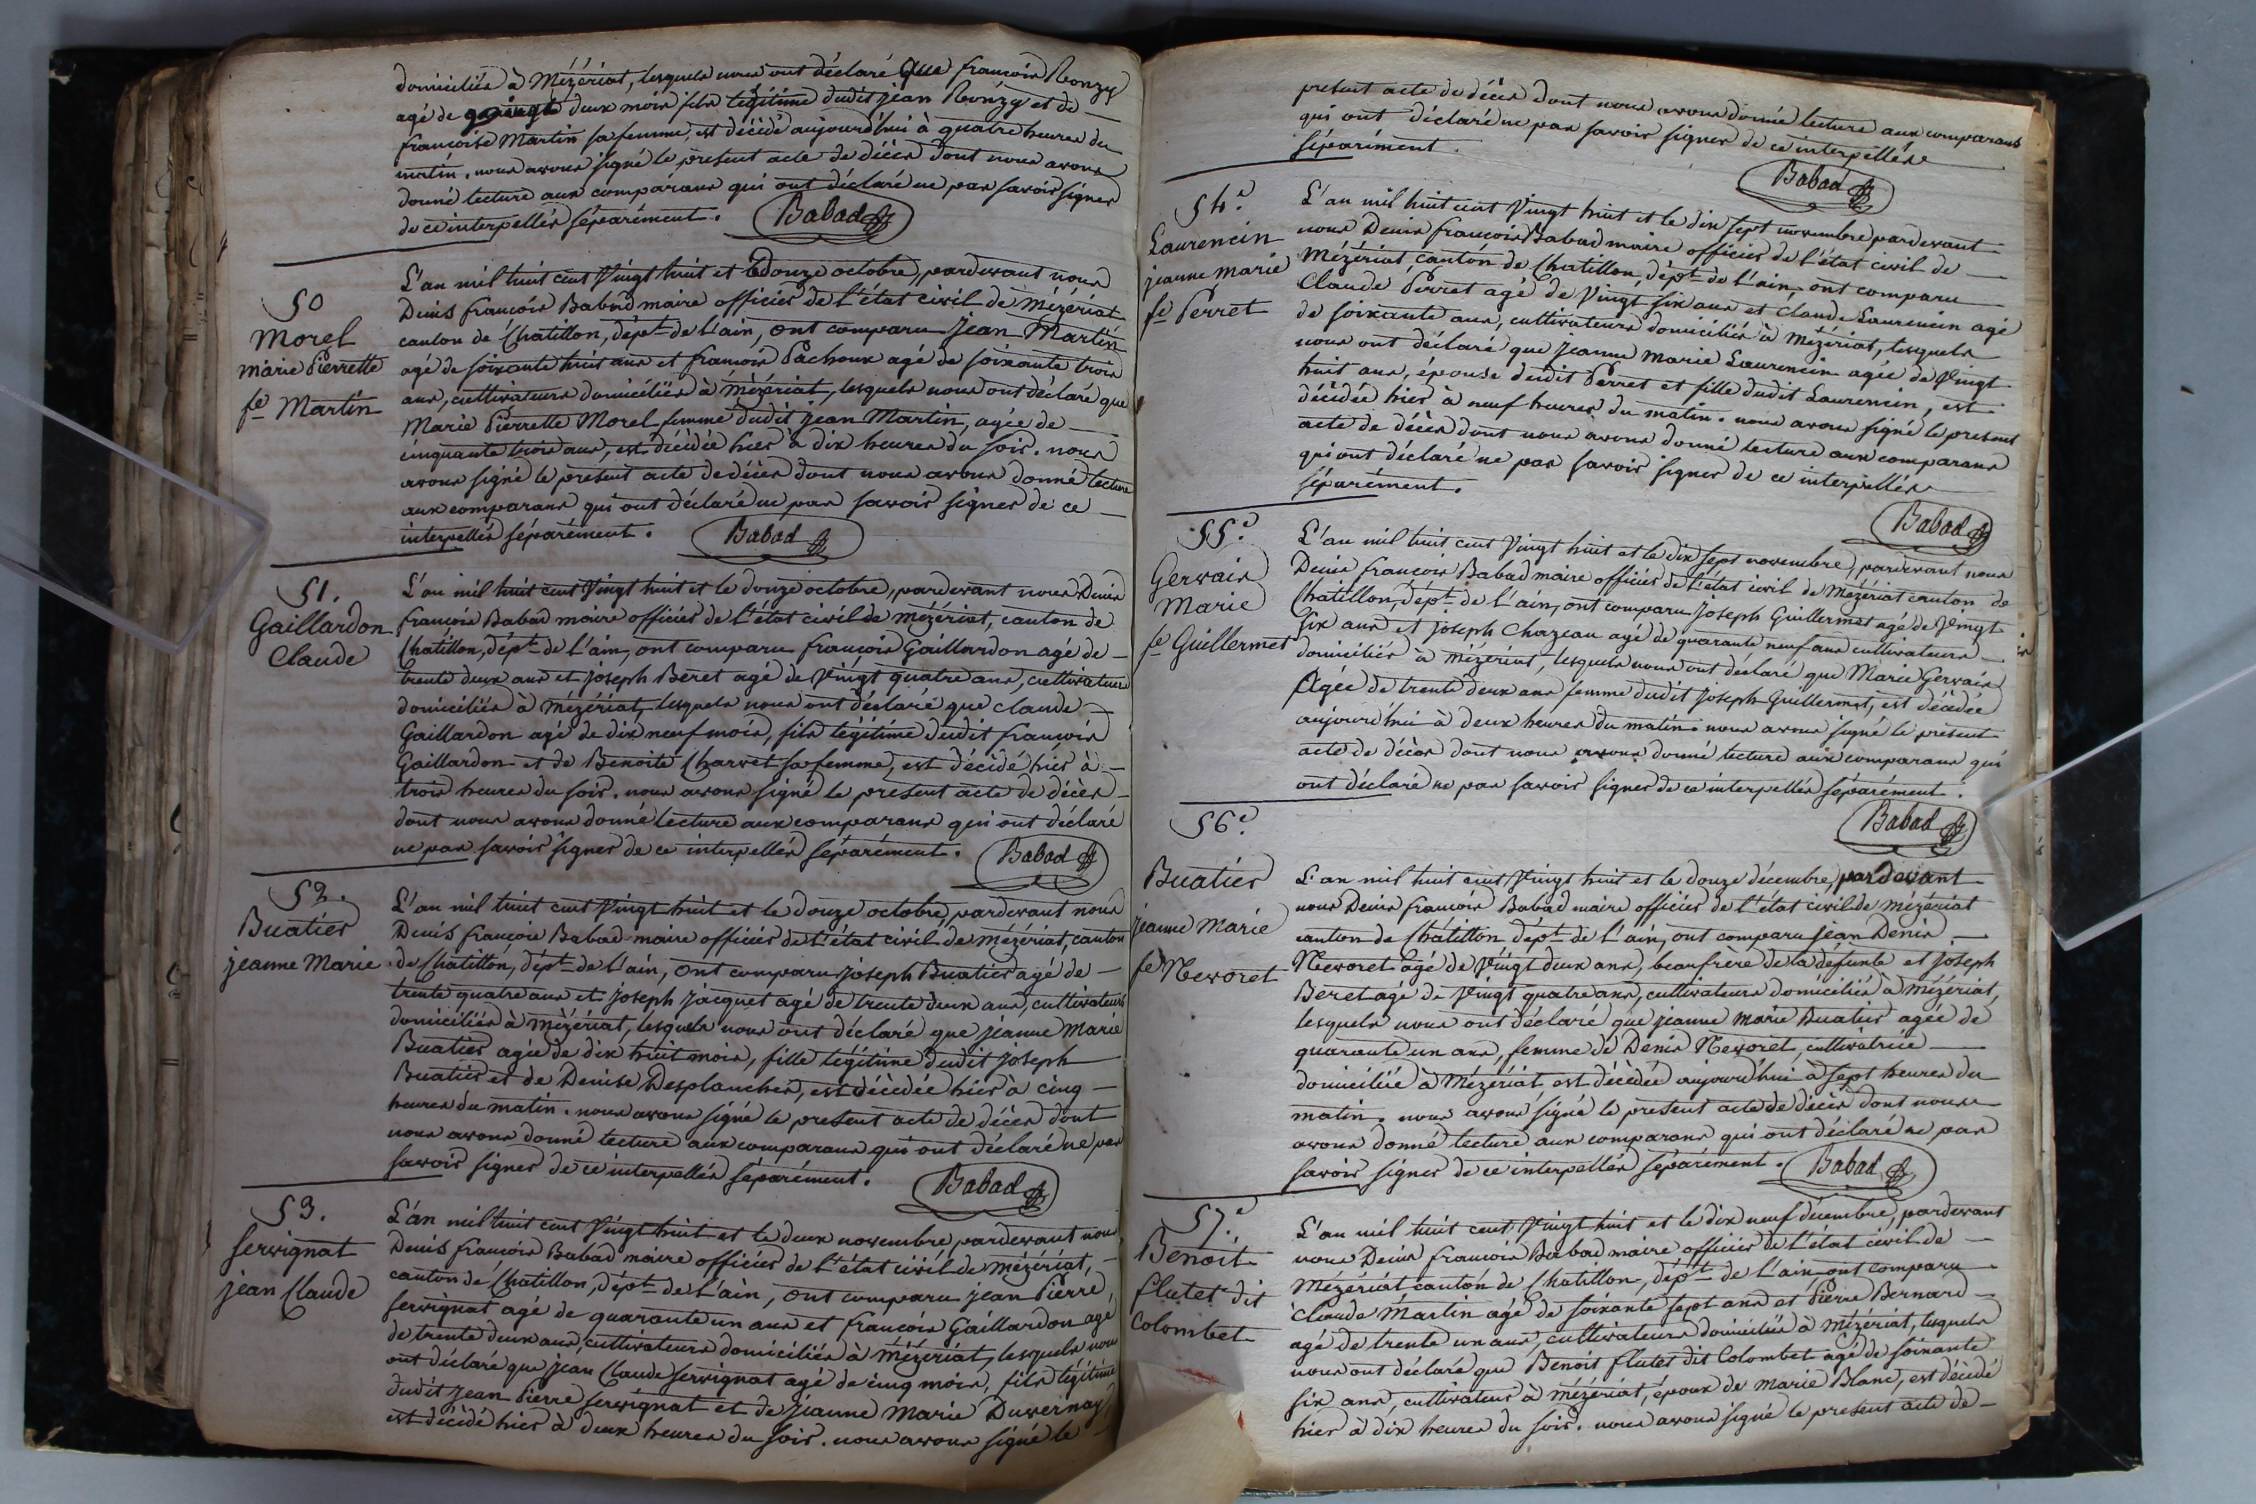 domiciliés à Mézériat, lesquels nous ont déclaré que françois Ronzy
agé de deux mois fils légitime dudit jean Ronzy et de
françoise Martin sa femme, est décédé aujourd'hui à quatre heures du
matin. nous avons signé le présent acte de décès dont nous avons
donné lecture aux comparans qui ont déclaré ne pas savoir signer
de ce interpellés séparément. Babad
50
Morel
marie Pierrette
fe Martin
L'an mil huit cent vingt huit et le douze octobre, pardevant nous
Denis françois Babad maire officier de l'état civil de Mézériat
canton de Chatillon, dépt. de l'ain, ont comparu jean Martin
agé de soixante huit ans et françois Pachoux agé de soixante trois
ans, cultivateurs domiciliés à mézériat, lesquels nous ont déclaré que
Marie Pierrette Morel femme dudit jean Martin, agée de
cinquante trois ans, est décédée hier à dix heures du soir. nous
avons signé le présent acte de décès dont nous avons donné lecture
aux comparans qui ont déclaré ne pas savoir signer de ce
interpellés séparément. Babad
51.
Gaillardon
Claude
L'an mil huit cent vingt huit et le douze octobre, pardevant nous Denis
françois Babad maire officier de l'état civil de mézériat, canton de
Chatillon, dépt. de l'ain, ont comparu françois Gaillardon agé de
trente deux ans et joseph Beret agé de vingt quatre ans, cultivateurs
domiciliés à Mézériat, lesquels nous ont déclaré que claude
Gaillardon agé de dix neuf mois, fils légitime dudit françois
Gaillardon et de Benoite Charvet sa femme, est décédé hier à
trois heures du soir. nous avons signé le présent acte de décès
dont nous avons donné lecture aux comparans qui ont déclaré
ne pas savoir signer de ce interpellés séparément. Babad
52.
Buatier
jeanne Marie
L'an mil huit cent vingt huit et le douze octobre, pardevant nous
Denis françois Babad maire officier de l'état civil de mézériat, canton
de Chatillon, dépt. de l'ain, ont comparu joseph Buatier agé de
trente quatre ans et joseph jacquet agé de trente deux ans, cultivateurs
domiciliés à mézériat, lesquels nous ont déclaré que jeanne marie
Buatier agée de dix huit mois, fille légitime dudit joseph
Buatier et de Denise Desplanches, est décédée hier à cinq
heures du matin. nous avons signé le présent acte de décès dont
nous avons donné lecture aux comparans qui ont déclaré ne pas
savoir signer de ce interpellés séparément. Babad
53.
servignat
jean Claude
L'an mil huit cent vingt huit et le deux novembre, pardevant nous
Denis françois Babad maire officier de l'état civil de mézériat,
canton de Chatillon, dépt. de l'ain, ont comparu jean Pierre
servignat agé de quarante un ans et françois Gaillardon agé
de trente deux ans, cultivateurs domiciliés à Mézériat, lesquels nous
ont déclaré que jean Claude servignat agé de cinq mois, fils légitime
dudit jean Pierre servignat et de jeanne Marie Duvernay,
est décédé hier à deux heures du soir. nous avons signé le
présent acte de décès dont nous avons donné lecture aux comparans
qui ont déclaré ne pas savoir signer de ce interpellés
séparément.
Babad
54e.
Laurencin
jeanne marie
fe Perret
L'an mil huit cent vingt huit et le dix sept novembre pardevant
nous Denis françois Babad maire officier de l'état civil de
Mézériat canton de Chatillon, dépt. de l'ain, ont comparu
Claude Perret agé de vingt six ans et Claude Laurencin agé
de soixante ans, cultivateurs domiciliés à Mézériat, lesquels
nous ont déclaré que jeanne Marie Laurencin agée de vingt
huit ans, épouse dudit Perret et fille dudit Laurencin, est
décédée hier à neuf heures du matin. nous avons signé le présent
acte de décès dont nous avons donné lecture aux comparans
qui ont déclaré ne pas savoir signer de ce interpellés
séparément.
Babad
55e.
Gervais
Marie
fe Guillermet
L'an mil huit cent vingt huit et le dix sept novembre, pardevant nous
Denis françois Babad maire officier de l'état civil de mézériat canton de
Chatillon, dépt. de l'ain, ont comparu joseph Guillermet agé de vingt
six ans et joseph Chazeau agé de quarante neuf ans cultivateurs
domiciliés à Mézériat, lesquels nous ont déclaré que Marie Gervais
Agée de trente deux ans femme dudit joseph Guillermet, est décédée
aujourd'hui à deux heures du matin. nous avons signé le présent
acte de décès dont nous avons donné lecture aux comparans qui
ont déclaré ne pas savoir signer de ce interpellés séparément.
Babad
56e.
Buatier
jeanne Marie
fe Nevoret
L'an mil huit cent vingt huit et le douze décembre, pardevant
nous Denis françois Babad maire officier de l'état civil de mézériat
canton de Chatillon dépt. de l'ain, ont comparu jean Denis
Nevoret agé de vingt deux ans, beaufrère de la défunte et joseph
Beret agé de vingt quatre ans, cultivateurs domiciliés à Mézériat,
lesquels nous ont déclaré que jeanne Marie Buatier agée de
quarante un ans, femme de Denis Nevoret, cultivatrice
domiciliée à Mézériat est décédée aujourd'hui à sept heures du
matin, nous avons signé le présent acte de décès dont nous
avons donné lecture aux comparans qui ont déclaré ne pas
savoir signer de ce interpellés séparément. Babad
57e.
Benoit
flutet dit
Colombet
L'an mil huit cent vingt huit et le dix neuf décembre, pardevant
nous Denis françois Babad maire officier de l'état civil de
Mézériat canton de Chatillon, dépt. de l'ain ont comparu
Claude Martin agé de soixante sept ans et Pierre Bernard
agé de trente un ans, cultivateurs domiciliés à Mézériat, lesquels
nous ont déclaré que Benoit flutet dit Colombet agé de soixante
six ans, cultivateur à Mézériat, époux de Marie Blanc, est décédé
hier à dix heures du soir. nous avons signé le présent acte de